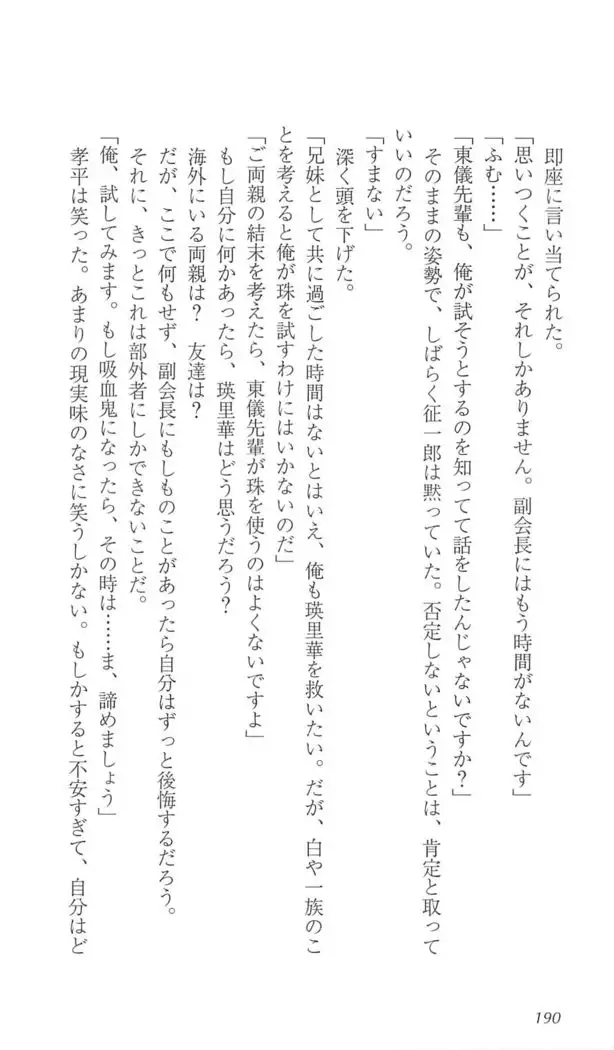 即座に言い当てられた。
「思いつくことが、それしかありません。副会長にはもう時間がないんです」
「ふむ……」
「東儀先輩も、俺が試そうとするのを知ってて話をしたんじゃないですか？」
そのままの姿勢で、しばらく征一郎は黙っていた。否定しないということは、肯定と取って
いいのだろう。
「すまない」
深く頭を下げた。
「兄妹として共に過ごした時間はないとはいえ、俺も瑛里華を救いたい。だが、白や一族のこ
とを考えると俺が珠を試すわけにはいかないのだ」
「ご両親の結末を考えたら、東儀先輩が珠を使うのはよくないですよ」
もし自分に何かあったら、瑛里華はどう思うだろう？
海外にいる両親は？　友達は？
だが、ここで何もせず、副会長にもしものことがあったら自分はずっと後悔するだろう。
それに、きっとこれは部外者にしかできないことだ。
「俺、試してみます。もし吸血鬼になったら、その時は……ま、諦めましょう」
孝平は笑った。あまりの現実味のなさに笑うしかない。もしかすると不安すぎて、自分はど
190